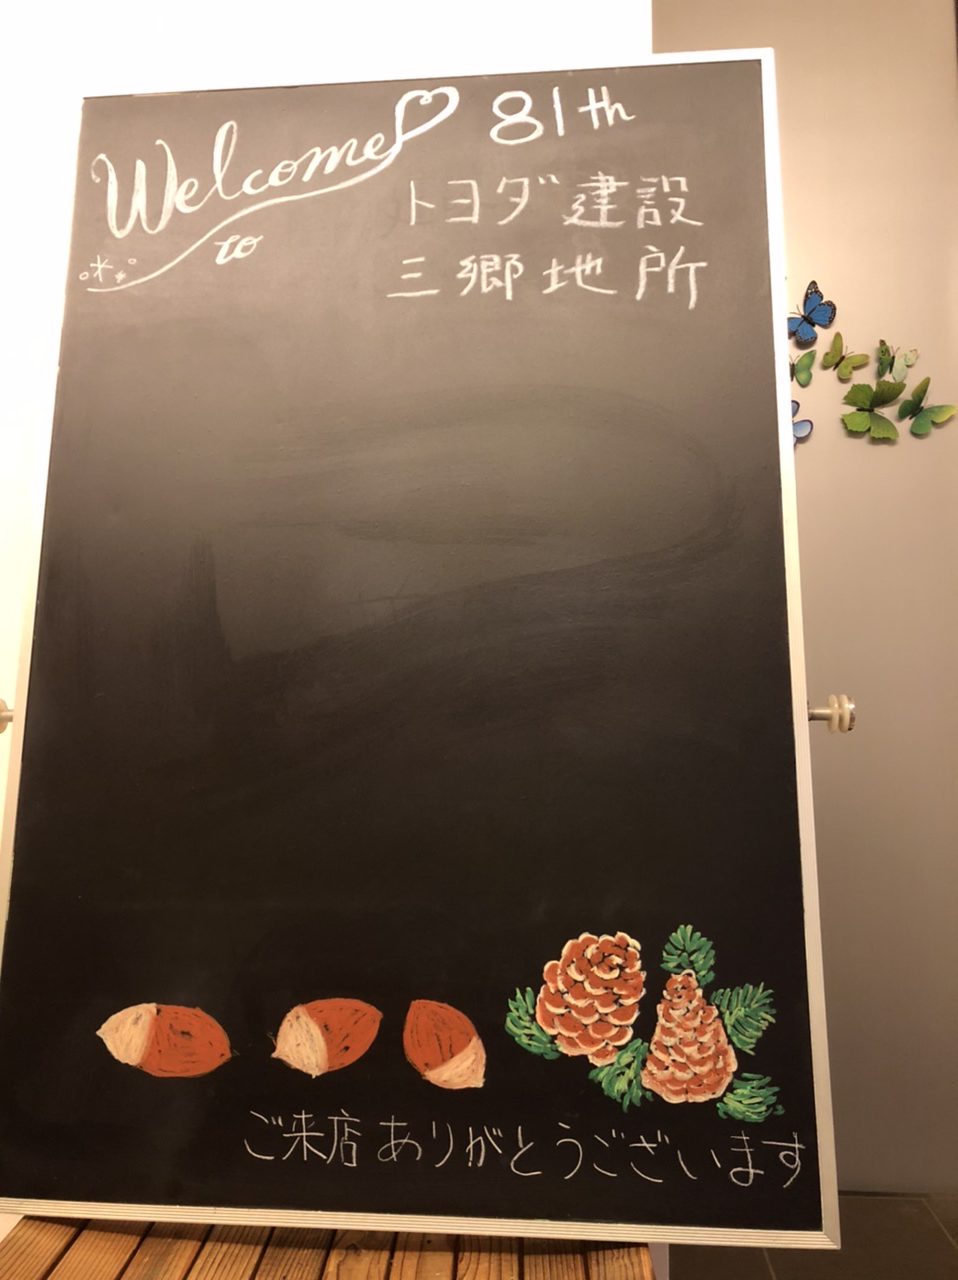 Welcome 81th
to トヨダ建設
三郷地所
ご来店ありがとうございます